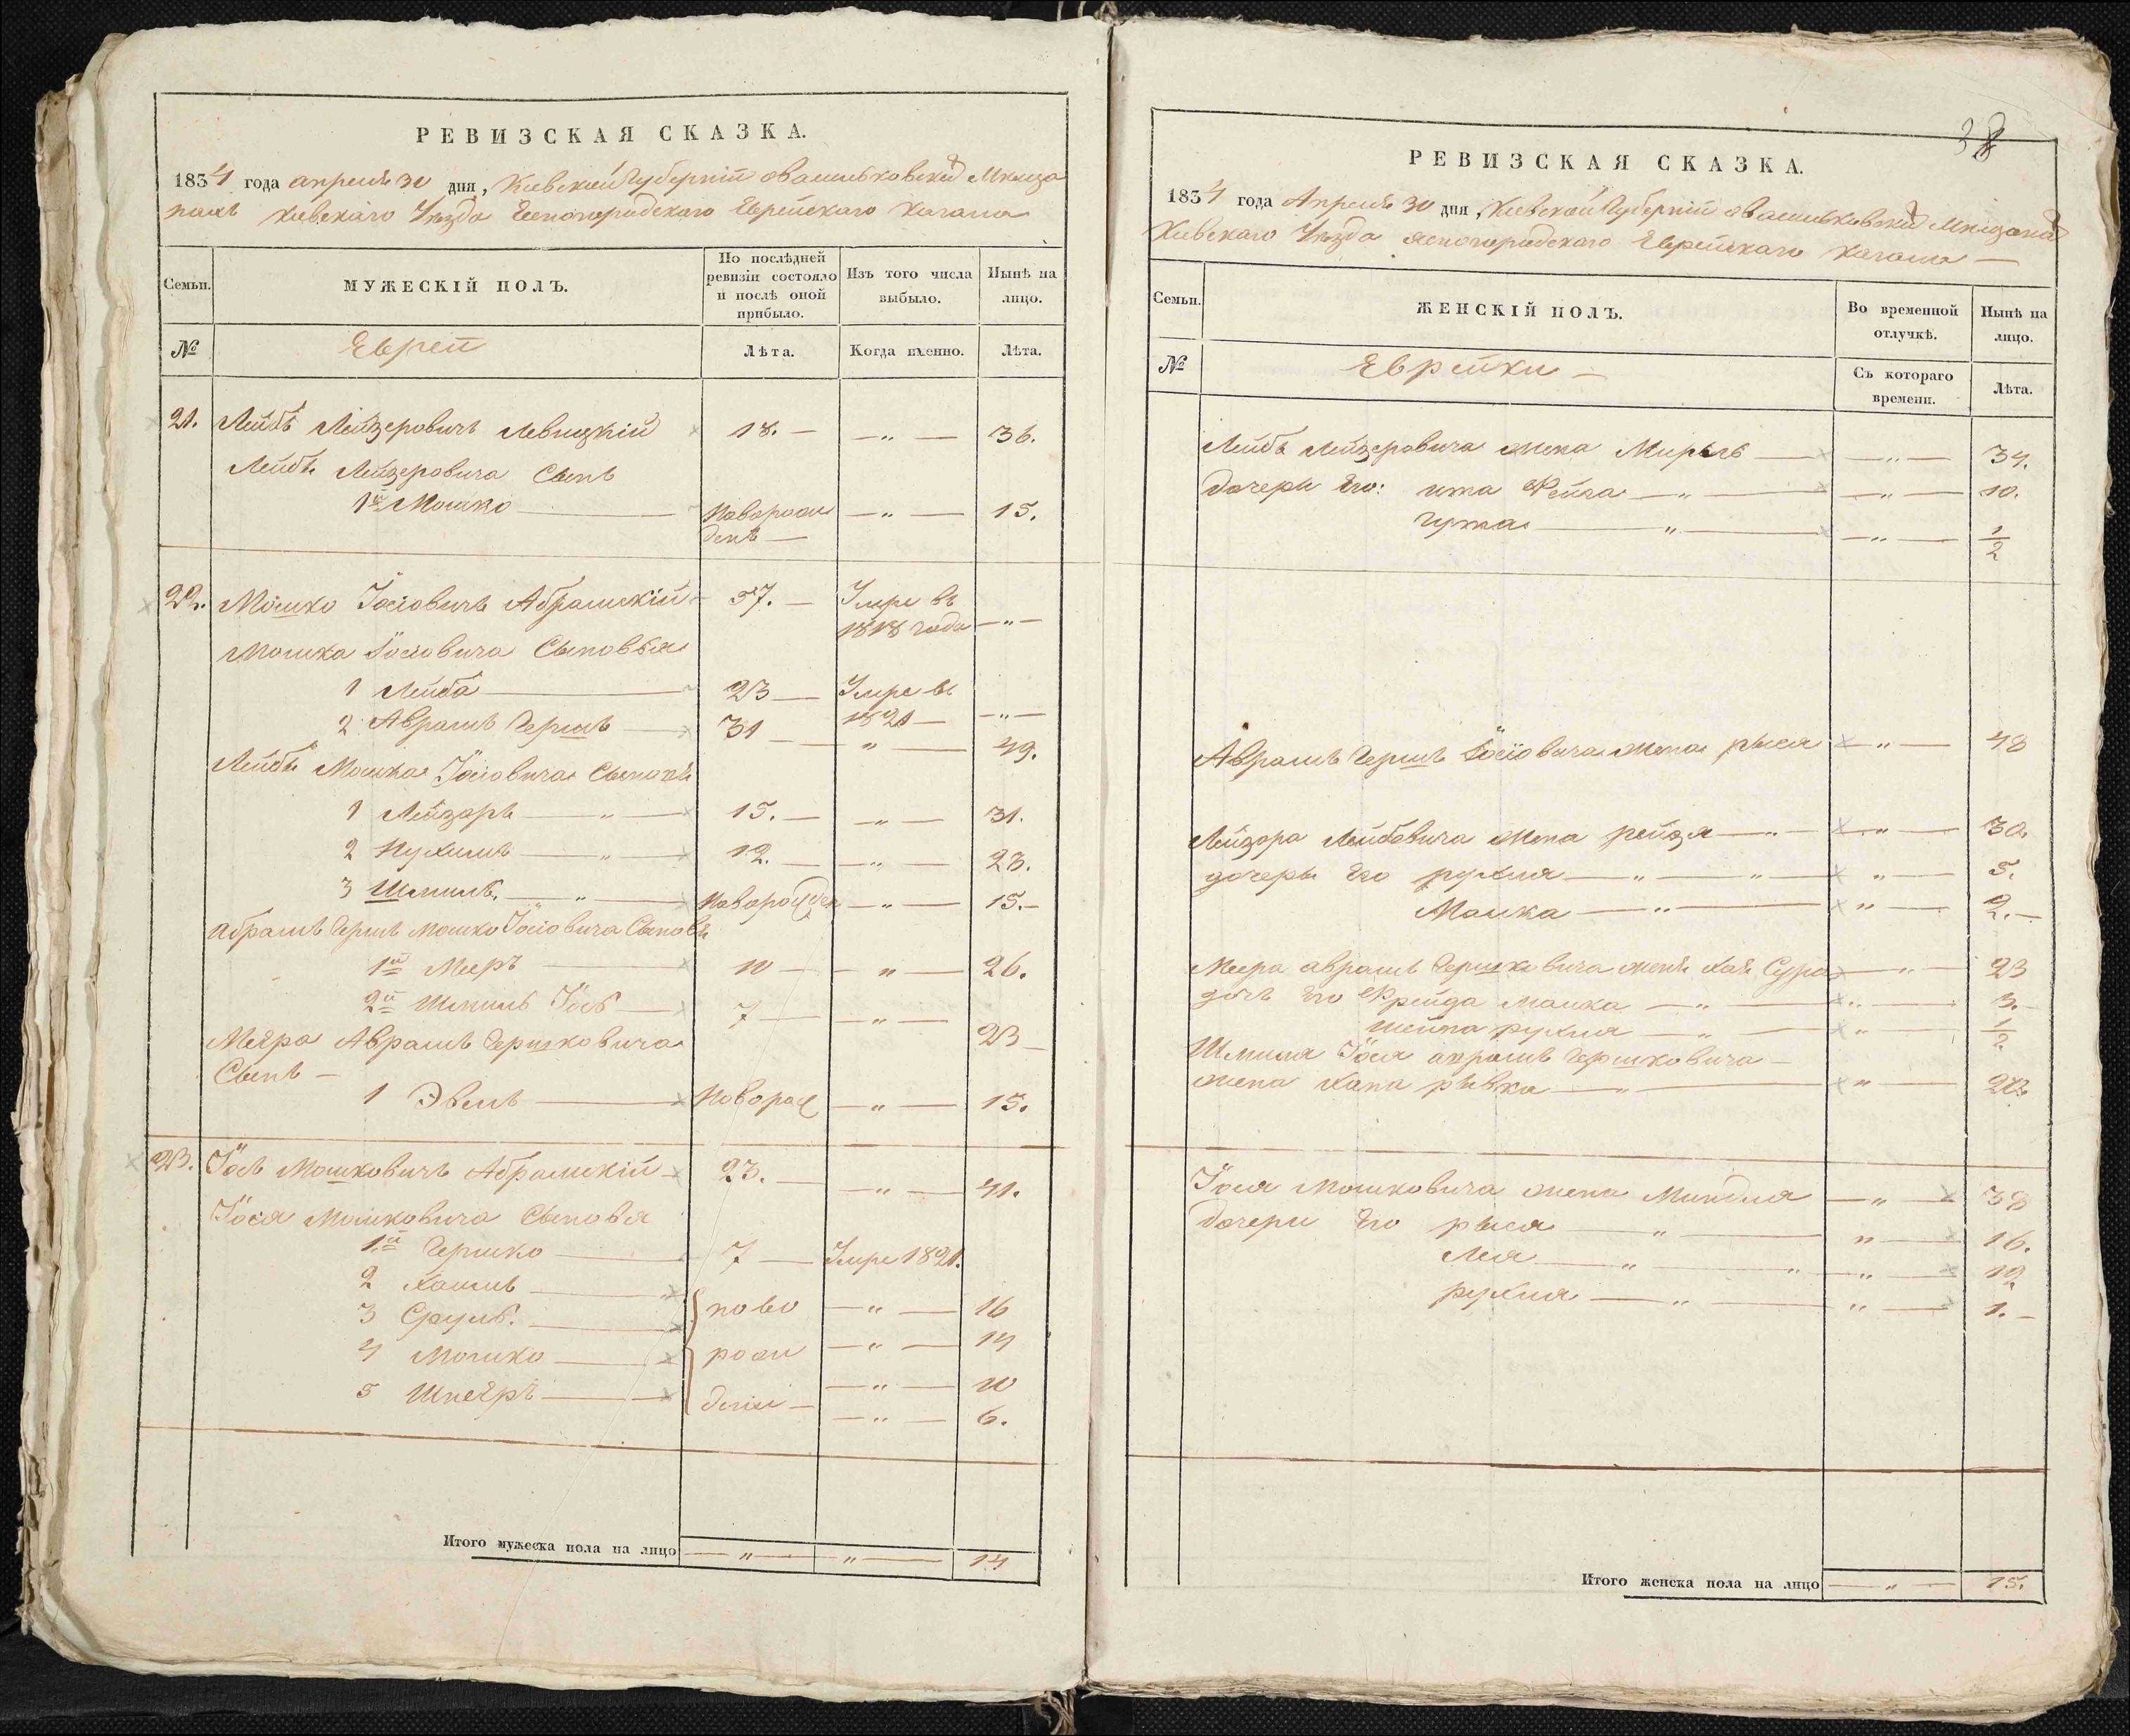 РЕВИЗСКАЯ СКАЗКА.
1834 года апреля 30 дня, Киевской Губерніи о васильковскихъ Мѣща
нахъ Киевскаго Уѣзда Ясногородскаго Еврейскаго Кагала
Семьи.
МУЖЕСКІЙ ПОЛЪ.
По послѣдней ревизіи состояло и послѣ оной прибыло.
Изъ того числа выбыло.
Нынѣ на лицо.
№
Евреи
Лѣта.
Когда именно.
Лѣта.
21. Лейбъ Лейзеровичъ Левицкій 18. — — „ — 36.
Лейбы Лейзеровича Сынъ
1й Мошко Новорож — „ — 15.
денъ —
22. Мошко Іосіовичъ Абрамскій 57. — Умре въ
1818 годе — „ —
Мошка Іосіовича Сыновья
1 Лейба 23 — Умре въ
1821 — — „ —
2 Аврамъ Гершъ 31 — „ — 49.
Лейбы Мошка Іосіовича Сыновья
1 Лейзоръ — „ — 15. — — „ — 31.
2 Нухимъ — „ — 12. — — „ — 28.
3 Шмиль. — „ — Новорожден — „ — 15. —
Абрамъ Герша Мошко Іосіовича Сыновья
1й Мееръ 10 — — „ — 26.
2й Шмиль Іось 7 — — „ —
23 —
Меера Аврамъ Гершковича
Сынъ —
1 Эвель Новорож — „ — 15.
23. Іось Мошковичъ Абрамскій 23. — — „ — 41.
Іося Мошковича Сыновья
1й Гершко 7 — Умре 1821.
2 Хаимъ
3 Сруль. ново — „ — 16
4 Мошко рож — „ — 14
— „ — 10
5 Шнеeръ дени — — „ — 6.
Итого мужеска пола на лицо — „ — „ — 14
38
РЕВИЗСКАЯ СКАЗКА.
1834 года Апреля 30 дня, Киевской Губерніи о васильковскихъ Мѣщанахъ
Киевскаго Уѣзда Ясногородскаго Еврейскаго Кагала —
Семьи.
ЖЕНСКІЙ ПОЛЪ.
Во временной отлучкѣ.
Нынѣ на лицо.
№
Еврейки —
Съ котораго времени.
Лѣта.
Лейбъ Лейзеровича жена Мирьль — — „ — 34.
Дочери Его: ита Фейга — „ — — „ — 10.
Гутка — „ — — „ — 1/2
Аврамъ Гершъ Іосіовича жена рыся — „ — 48
Лейзора Лейбовича жена рейзя — „ — — „ — 30.
дочеры Его рухля — „ — „ — „ — 5.
Малка — „ — „ — 2. —
Меера аврамъ Гершковича жена Хая Сура — „ — 23
дочь Его Фрейда малка — „ — „ — 3. —
шейна рухля — „ — „ — 1/2
Шмиля Іося аврамъ Гершковича —
жена Хана ривка — „ — „ — 20
Іося Мошковича жена Миндля — „ — 38
Дочери Его рыся — „ — „ — 16.
Лея — „ — „ — „ — 12
рухля — „ — „ — 1. —
Итого женска пола на лицо — „ — 15.